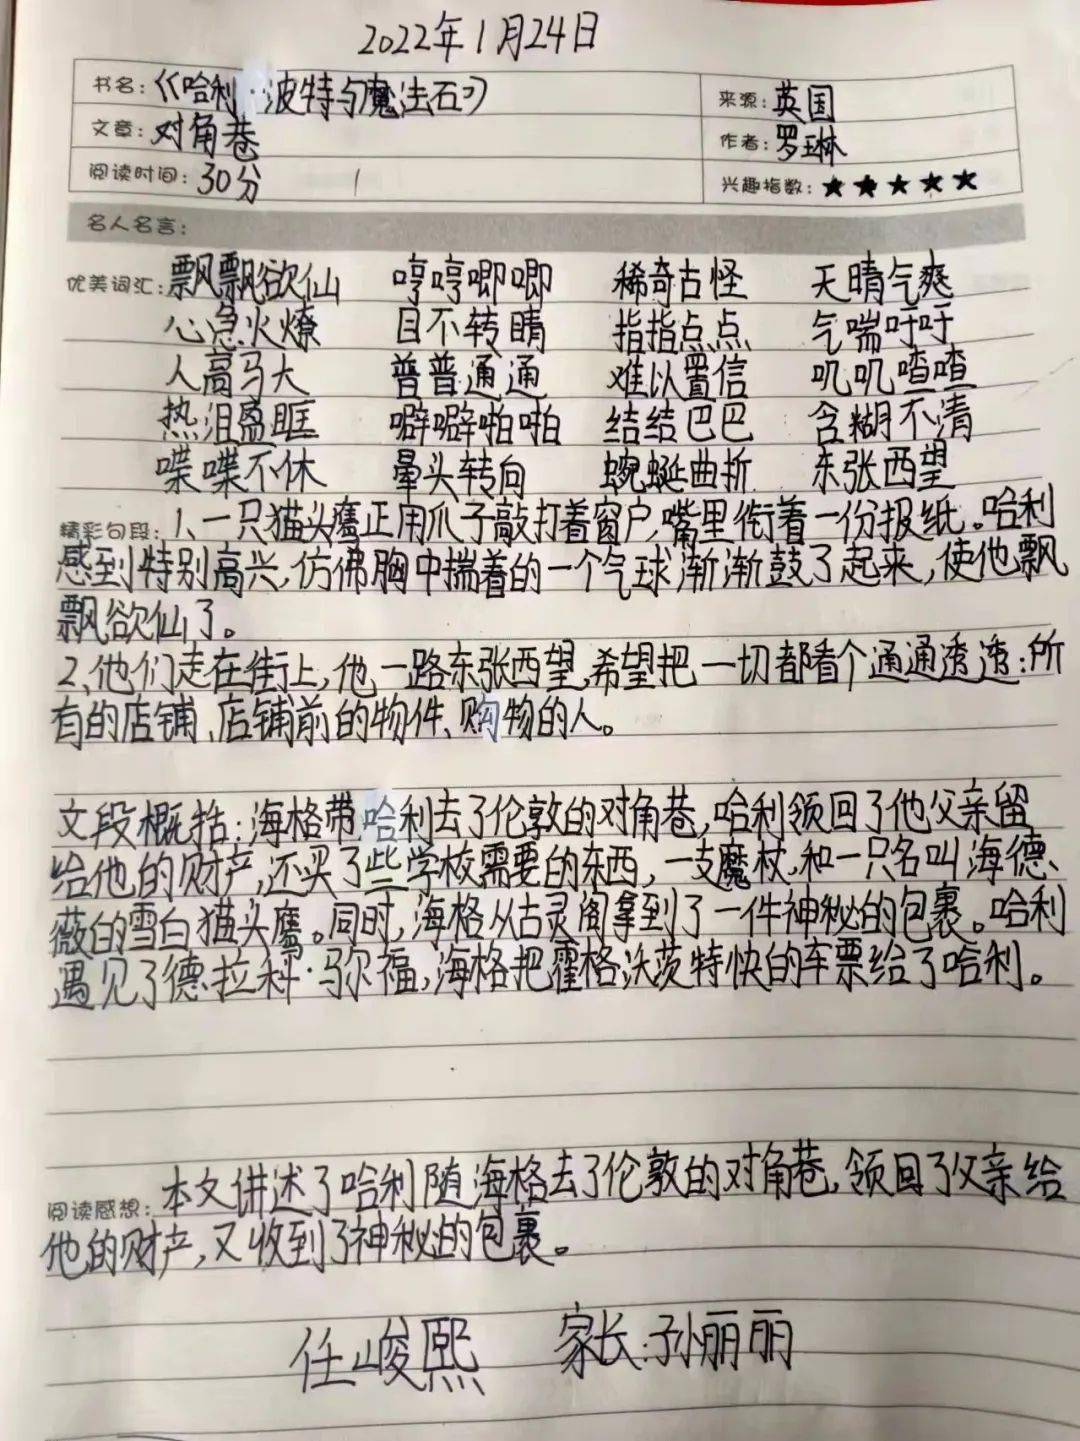 2022年1月24日
书名:《哈利·波特与魔法石》 来源:英国
文章:对角巷 作者:罗琳
阅读时间:30分 兴趣指数:★★★★★
名人名言:
优美词汇:飘飘欲仙 哼哼唧唧 稀奇古怪 天晴气爽
心急火燎 目不转睛 指指点点 气喘吁吁
人高马大 普普通通 难以置信 叽叽喳喳
热泪盈眶 噼噼啪啪 结结巴巴 含糊不清
喋喋不休 晕头转向 蜿蜒曲折 东张西望
精彩句段:1、一只猫头鹰正用爪子敲打着窗户,嘴里衔着一份报纸。哈利
感到特别高兴,仿佛胸中揣着的一个气球渐渐鼓了起来,使他飘
飘欲仙了。
2、他们走在街上,他一路东张西望,希望把一切都看个通通透透:所
有的店铺、店铺前的物件、购物的人。
文段概括:海格带哈利去了伦敦的对角巷,哈利领回了他父亲留
给他的财产,还买了些学校需要的东西,一支魔杖,和一只名叫海德
薇的雪白猫头鹰。同时,海格从古灵阁拿到了一件神秘的包裹。哈利
遇见了德拉科·马尔福,海格把霍格沃茨特快的车票给了哈利。
阅读感想:本文讲述了哈利随海格去了伦敦的对角巷,领回了父亲给
他的财产,又收到了神秘的包裹。
任峻熙 家长:孙丽丽